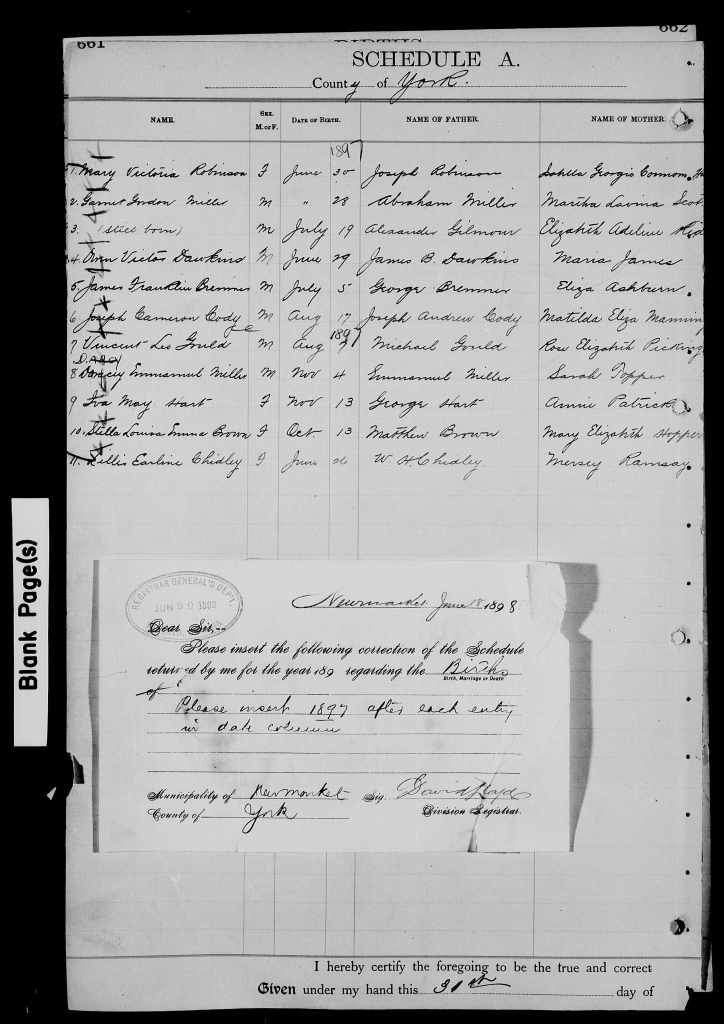 661
662
SCHEDULE A.
County of York.
NAME. SEX. M. OR F. DATE OF BIRTH. NAME OF FATHER. NAME OF MOTHER.
1897
1. Mary Victoria Robinson F June 30 Joseph Robinson
2. Garnet Gordon Miller M " 28 Abraham Miller Martha Lavina Scot
3. (still born) M July 19 Alexander Gilmour Elizabeth Adeline
4. Oren Victor Dawkins M June 29 James B. Dawkins Maria James
5. James Franklin Bremner M July 5 George Bremner Eliza Ashburn
6 Joseph Cameron Cody M Aug 17 Joseph Andrew Cody Matilda Eliza Manning
1897
7 Vincent Leo Gould M Aug 7 Michael Gould Rose Elizabeth Picking
8 Emmanuel Miller M Nov 4 Emmanuel Miller Sarah Topper
9 Iva May Hart F Nov 13 George Hart Annie Patrick
10. Stella Louisa Emma Brown F Oct. 13 Matthew Brown Mary Elizabeth Hopper
11. Lillis Earline Chidley F June 26 W. H. Chidley Mersey Ramsay
Blank Page(s)
REGISTRAR GENERAL'S DEPT.
JUN 20 1898
Newmarket June 18 1898
Dear Sir,--
Please insert the following correction of the Schedule
returned by me for the year 189 regarding the Births
Birth, Marriage or Death
of
Please insert 1897 after each entry
in date column
Municipality of Newmarket Sig. David Lloyd
County of York Division Registrar.
I hereby certify the foregoing to be the true and correct
Given under my hand this 31st day of